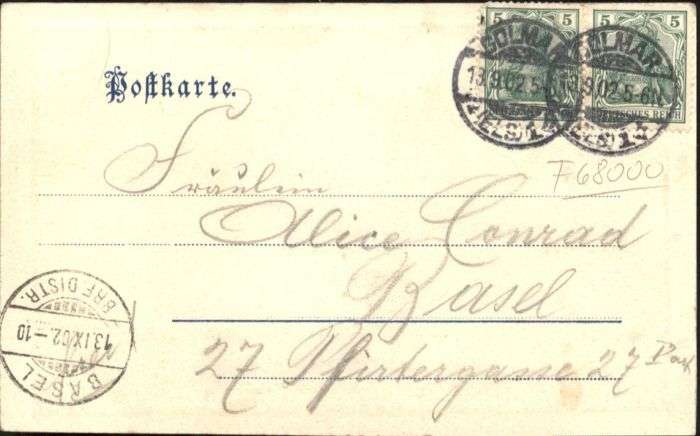 5 5
COLMAR
13.9.02.5-6N.
(ELS) 1
COLMAR
13.9.02.5-6N.
(ELS) 1
DEUTSCHES REICH
Postkarte.
F68000
Fräulein
Alice Conrad
Basel
27 Pfirtergasse 27
BASEL
13.IX.02.–10
BRF.DISTR.